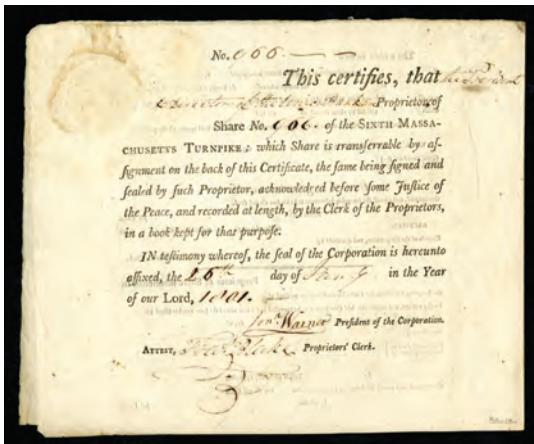 No. 066.
This certifies, that
Proprietor of
Share No. 606. of the SIXTH MASSA-
CHUSETTS TURNPIKE; which Share is transferrable by as-
signment on the back of this Certificate, the same being signed and
sealed by such Proprietor, acknowledged before some Justice of
the Peace, and recorded at length, by the Clerk of the Proprietors,
in a book kept for that purpose.
IN testimony whereof, the seal of the Corporation is hereunto
affixed, the 26th day of in the Year
of our Lord, 1801.
Jon.a Warner President of the Corporation.
ATTEST, Blake Proprietors' Clerk.